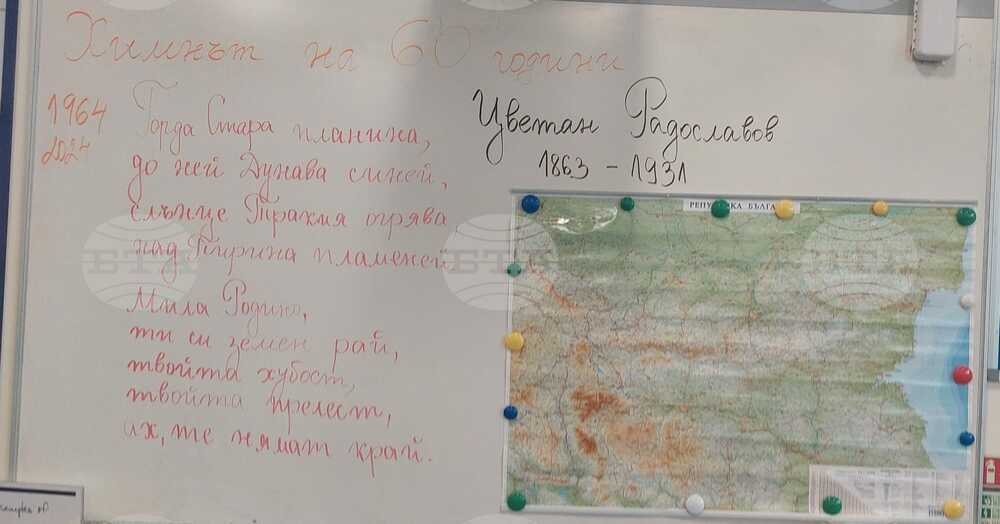 Химнът на 60 години
1964
2024
Горда Стара планина,
до ней Дунава синей,
слънце Тракия огрява,
над Пирина пламеней.
Мила Родино,
ти си земен рай,
твойта хубост,
твойта прелест,
ах, те нямат край.
Цветан Радославов
1863 - 1931
РЕПУБЛИКА БЪЛГАРИЯ
БТА
БТА
БТА